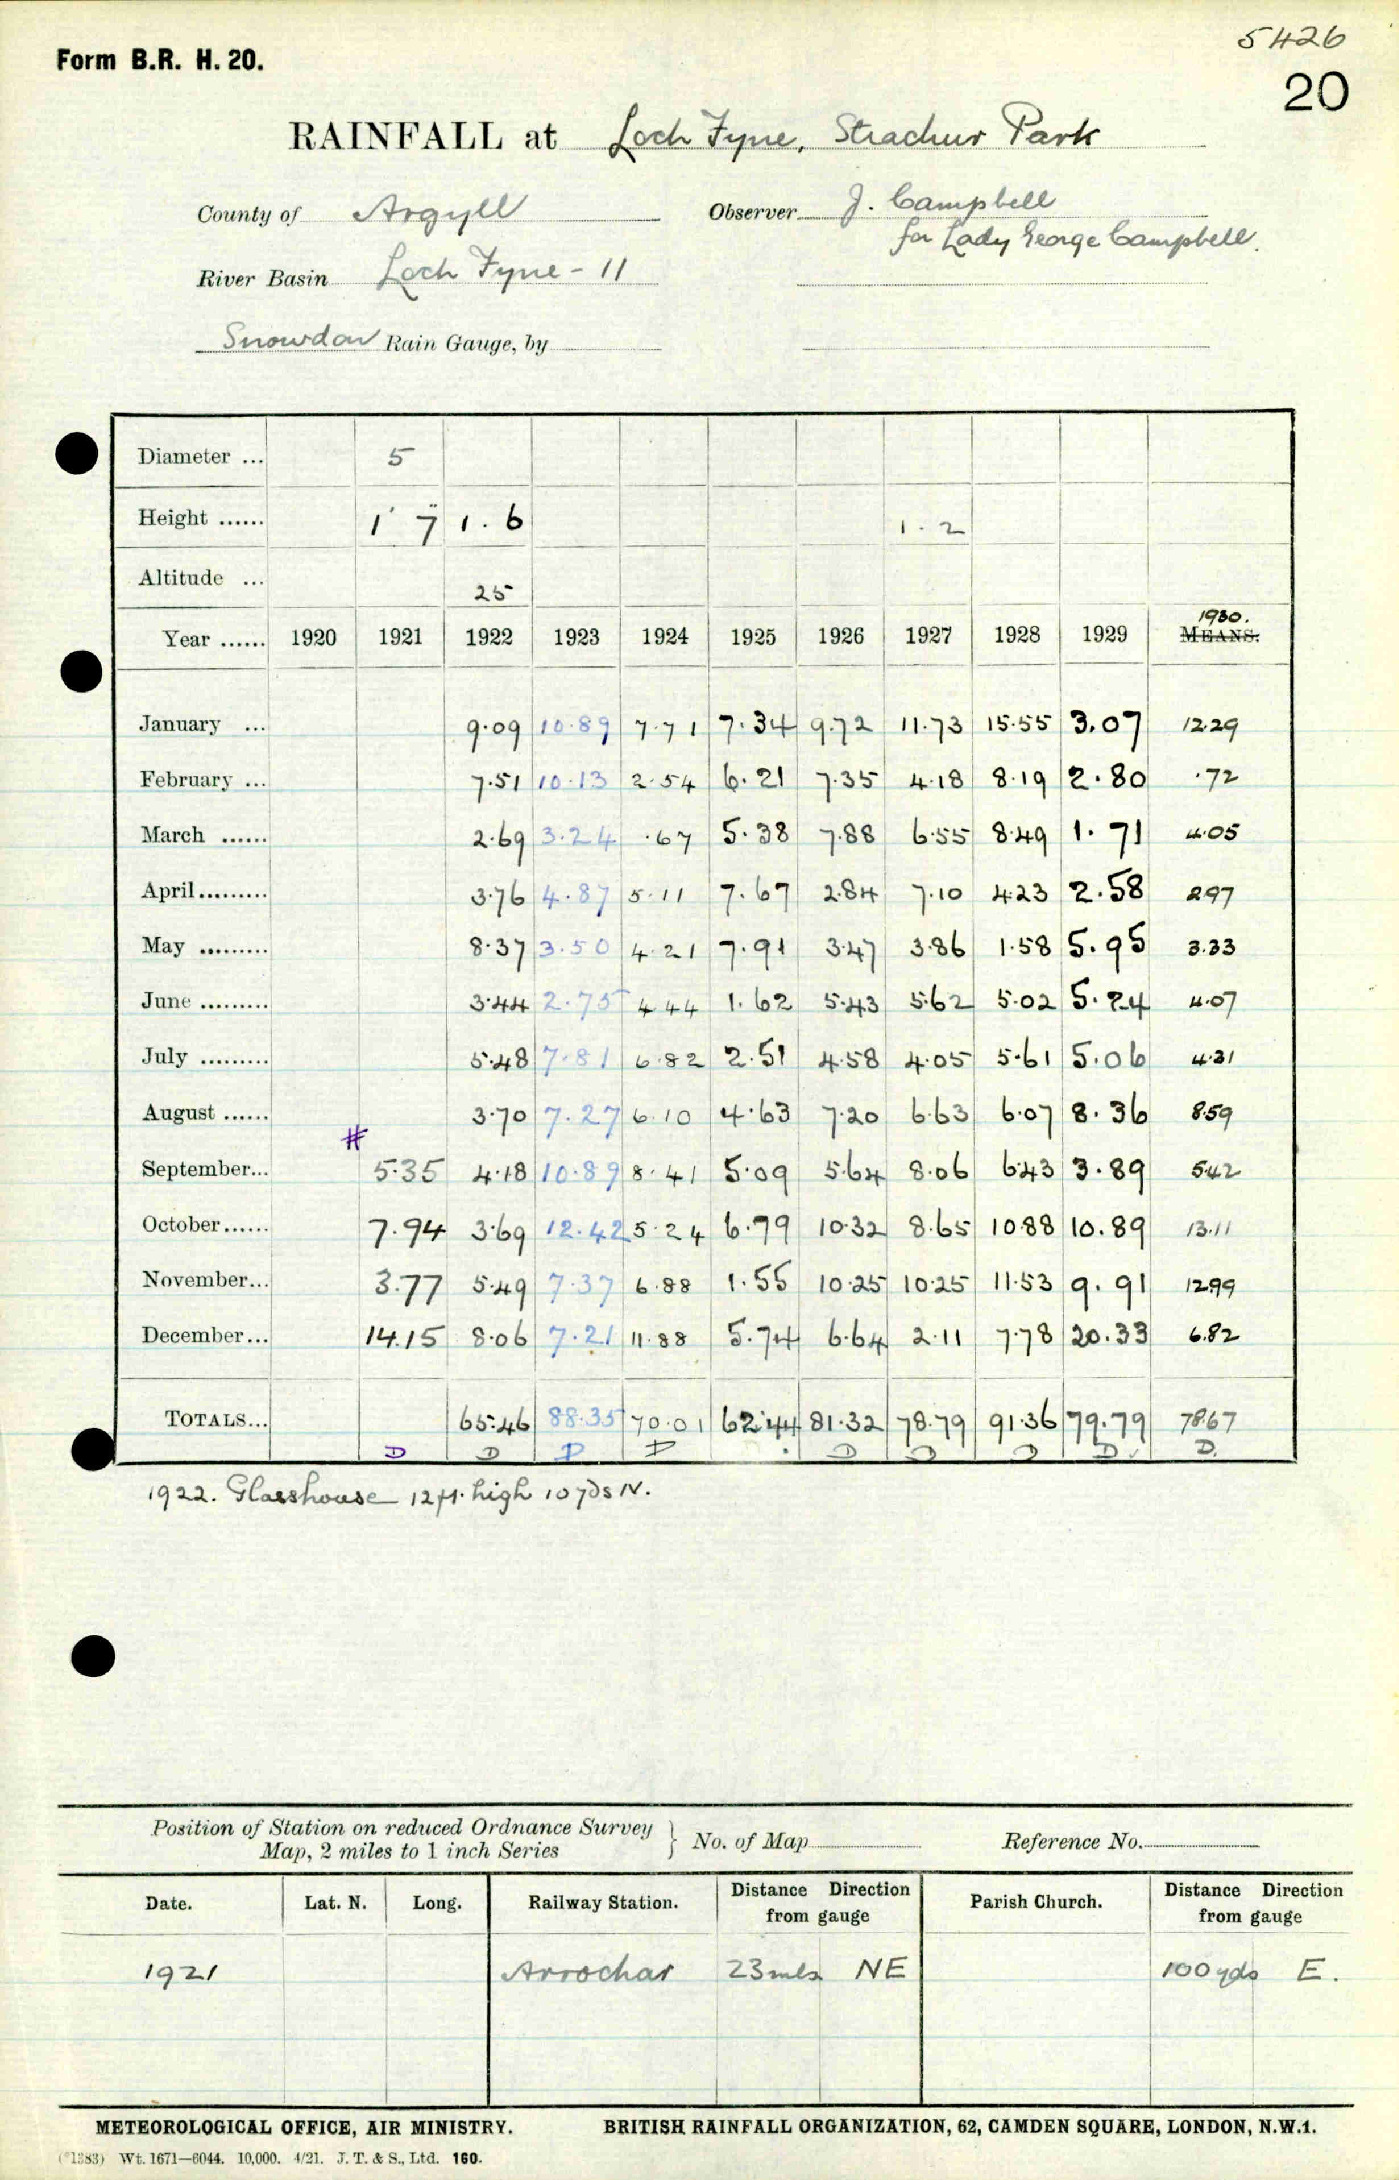 5426
Form B.R. H. 20.
20
RAINFALL at Loch Fyne, Strachur Park
County of Argyll Observer J. Campbell
for Lady George Campbell.
River Basin Loch Fyne - 11
Snowdon Rain Gauge, by
Diameter ... 5
Height ...... 1' 7" 1.6 1.2
Altitude ... 25
1930.
Year ...... 1920 1921 1922 1923 1924 1925 1926 1927 1928 1929 MEANS.
January ... 9.09 10.89 7.71 7.34 9.72 11.73 15.55 3.07 12.29
February ... 7.51 10.13 2.54 6.21 7.35 4.18 8.19 2.80 .72
March ...... 2.69 3.24 .67 5.38 7.88 6.55 8.49 1.71 4.05
April ......... 3.76 4.87 5.11 7.67 2.84 7.10 4.23 2.58 2.97
May ......... 8.37 3.50 4.21 7.91 3.47 3.86 1.58 5.95 3.33
June ......... 3.44 2.75 4.44 1.62 5.43 5.62 5.02 5.24 4.07
July ......... 5.48 7.81 6.82 2.51 4.58 4.05 5.61 5.06 4.31
August ...... 3.70 7.27 6.10 4.63 7.20 6.63 6.07 8.36 8.59
#
September... 5.35 4.18 10.89 8.41 5.09 5.64 8.06 6.43 3.89 5.42
October...... 7.94 3.69 12.42 5.24 6.79 10.32 8.65 10.88 10.89 13.11
November... 3.77 5.49 7.37 6.88 1.55 10.25 10.25 11.53 9.91 12.99
December... 14.15 8.06 7.21 11.88 5.74 6.64 2.11 7.78 20.33 6.82
TOTALS... 65.46 88.35 70.01 62.44 81.32 78.79 91.36 79.79 78.67
D D D D D D D D D.
1922. Glasshouse 12ft. high 10 yds N.
Position of Station on reduced Ordnance Survey
Map, 2 miles to 1 inch Series } No. of Map Reference No.
Date. Lat. N. Long. Railway Station. Distance Direction from gauge Parish Church. Distance Direction from gauge
1921 Arrochar 23 mls NE 100 yds E.
METEOROLOGICAL OFFICE, AIR MINISTRY. BRITISH RAINFALL ORGANIZATION, 62, CAMDEN SQUARE, LONDON, N.W.1.
Wt. 1671—6044. 10,000. 4/21. J. T. & S., Ltd. 160.